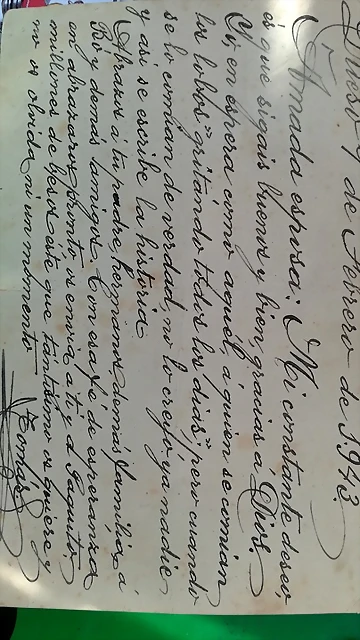 7 de Febrero de 1.943.
Amada esposa: Mi constante deseo,
és que sigais buenos y bien, gracias a Dios.
Yo, en espera como aquel, a quien se comian
los lobos "gritando todos los dias", pero cuando
se lo comian de verdad, no lo creyó ya nadie
y asi se escribe la historia.
Abrazos a tu padre, hermanos, demás familia, a
y demás amigos. Con esa fé de esperanza
en abrazaros pronto, s envia a ti y al
millones de besos este que tantisimo os quiere y
no os olvida ni un momento Tomás